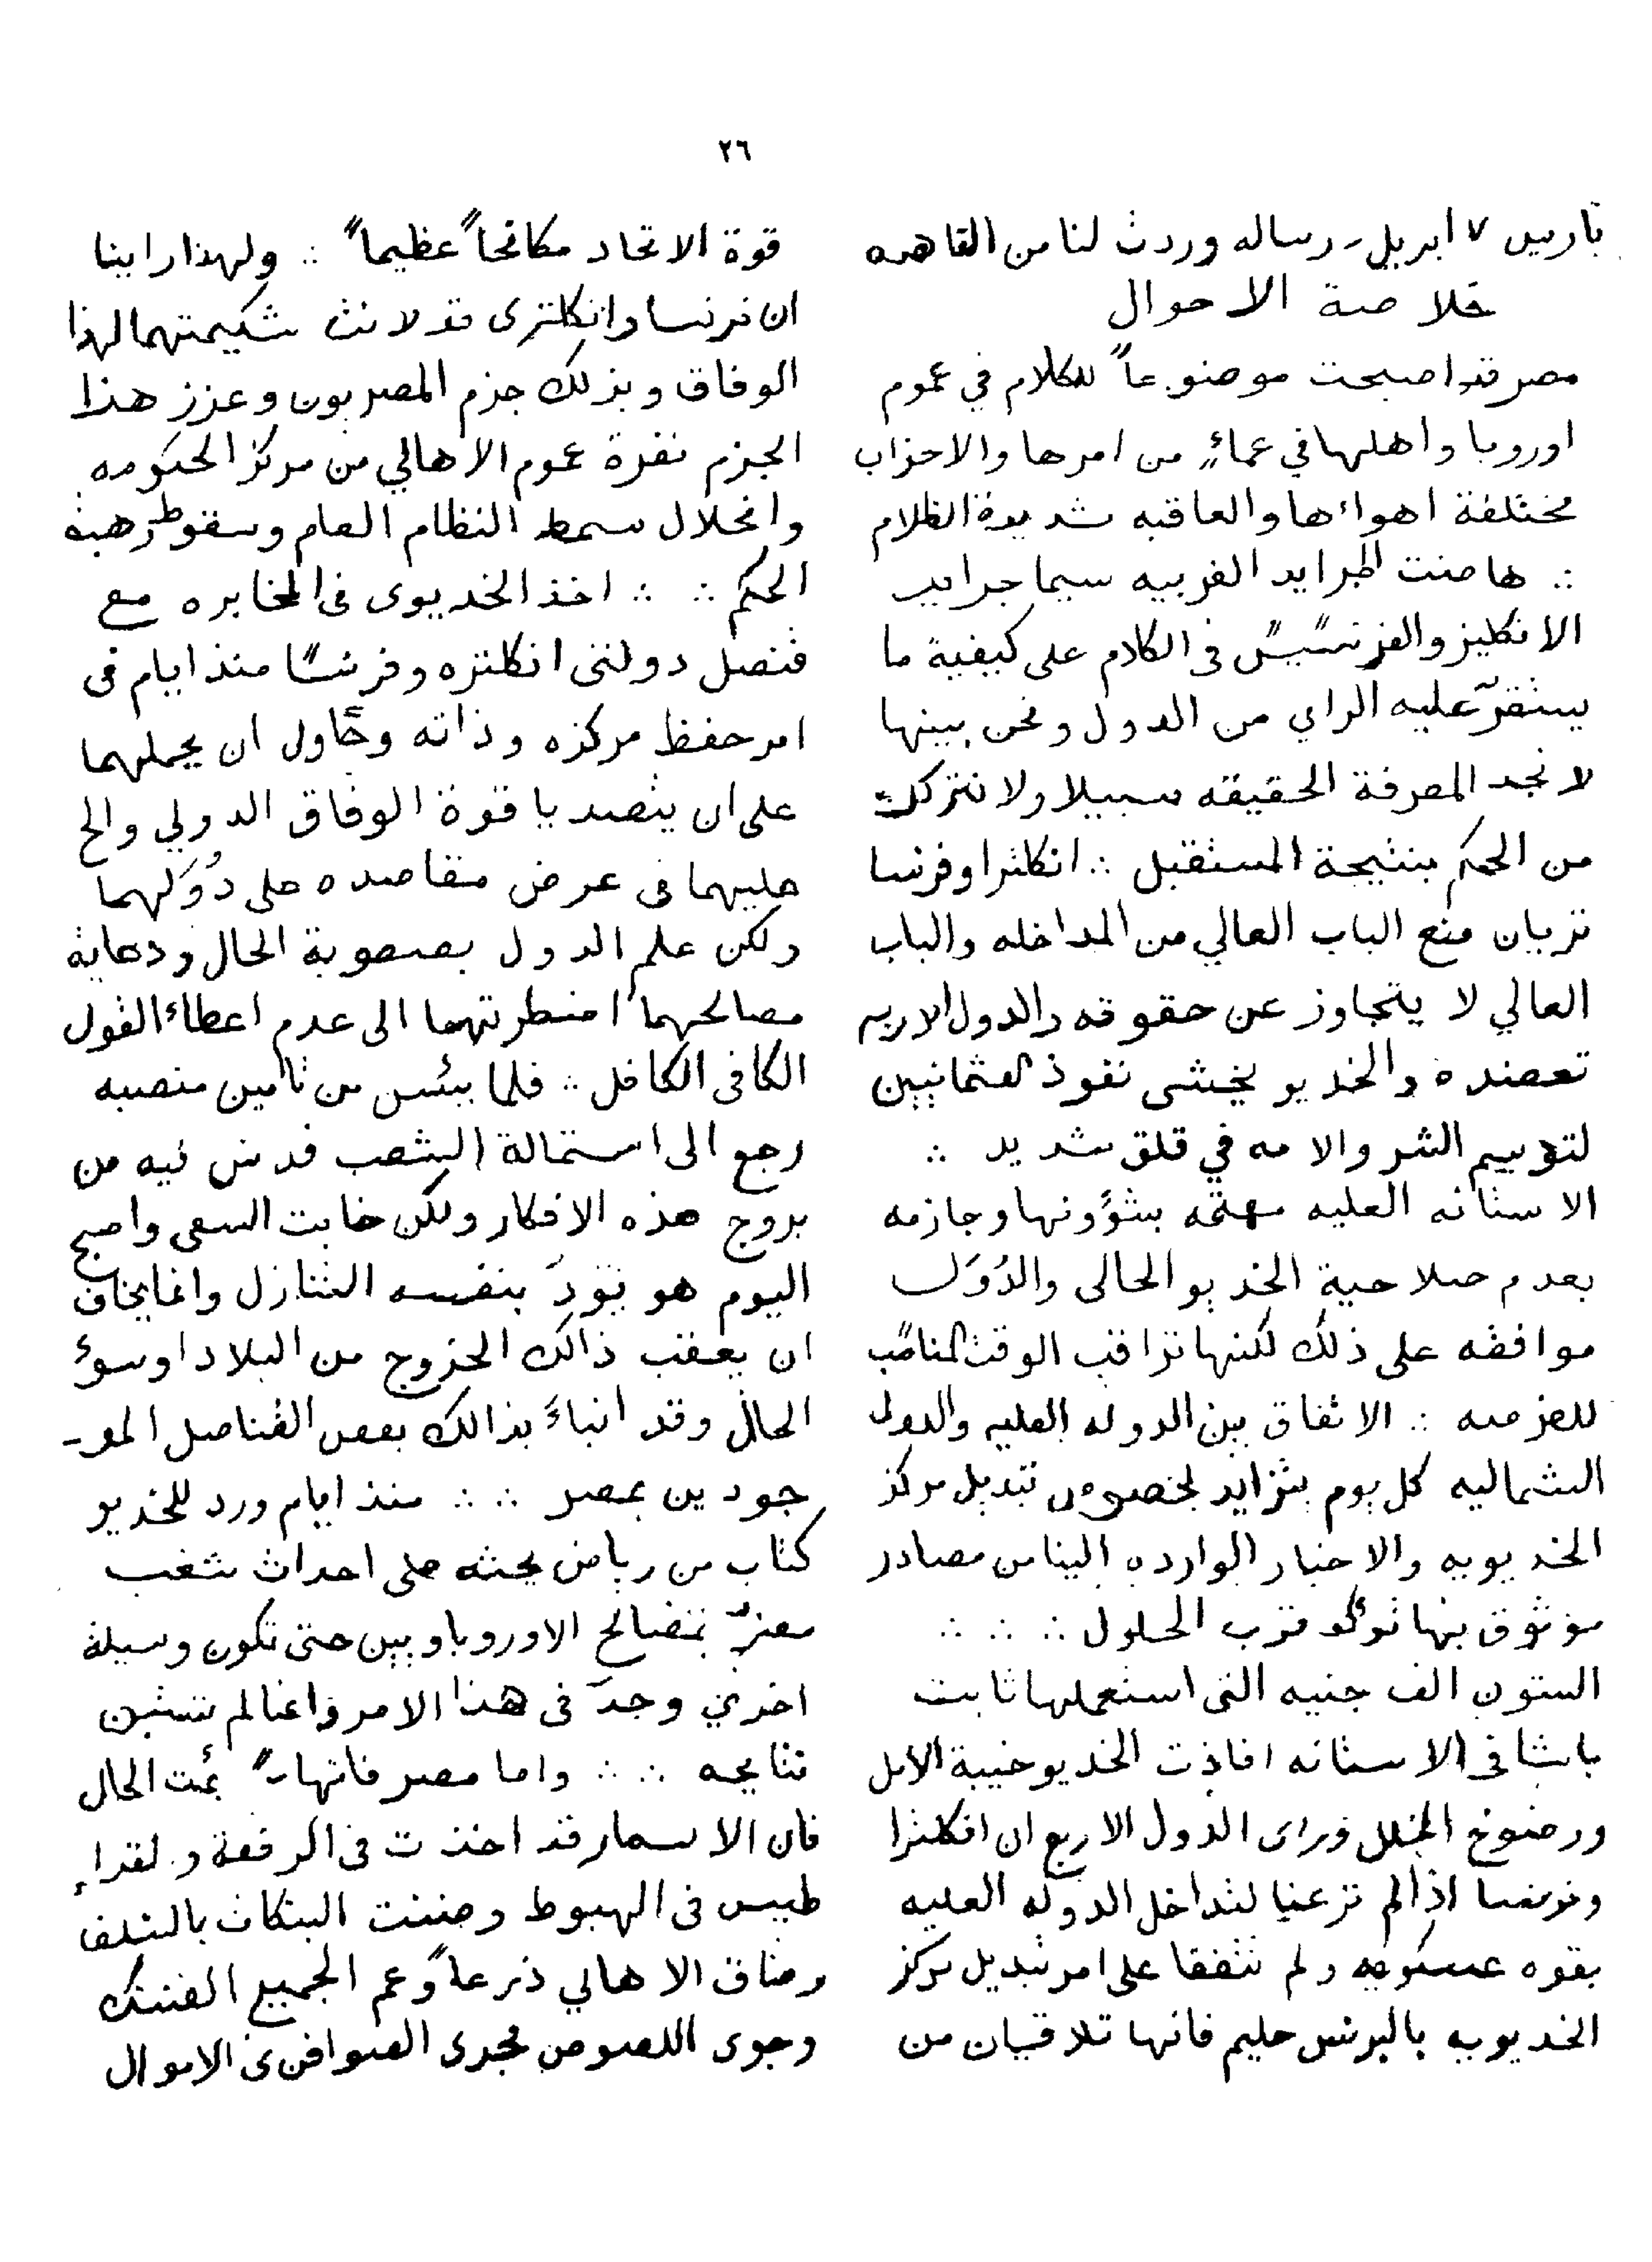 ٢٦
باريس ٧ ابريل - رساله وردت لنا من القاهره
خلاصة الاحوال
مصر قد اصبحت موضوعاً للكلام في عموم
اوروبا واهلها في عماءٍ من امرها والاحزاب
مختلفة اهواءها والعاقبه شديدة الظلام
∴ هاضت الجرايد الغربيه سيما جرايد
الانكليز والفرنسيس فى الكلام على كيفية ما
يستقرّ عليه الراي من الدول ونحن بينها
لا نجد لمعرفة الحقيقه سبيلا ولا نترك
من الحكم بنتيجة المستقبل ∴ انكلترا وفرنسا
تريان منع الباب العالي من المداخله والباب
العالي لا يتجاوز عن حقوقه والدول الاربع
تعضده والخديو يخشى نفوذ العثمانيين
لتوييم الشر والامه في قلق شديد ∴
الاستانه العليه مهتمه بشؤونها وجازمه
بعدم صلاحية الخديو الحالى والدُوَل
موافقه على ذلك لكنها تراقب الوقت المناسب
للعزمه ∴ الاتفاق بين الدوله العليه والدول
الشماليه كل يوم يتزايد لخصوص تبديل مركز
الخديويه والاخبار الوارده الينا من مصادر
موثوق بها توكد قرب الحلول ∴ ∴ ∴
الستون الف جنيه التى استعملها ثابت
باشا فى الاستانه افاذت الخديو خيبة الامل
ورضوخ الخلل وراى الدول الاربع ان انكلترا
وفرنسا اذا لم ترعيا لتداخل الدوله العليه
بقوه عسكريه ولم تتفقا على امر تبديل مركز
الخديويه بالبرنس حليم فانها تلاقيان من
قوة الاتحاد مكافحاً عظيماً ∴ ولهذا راينا
ان فرنسا وانكلترى قد لانت شكيمتهما لهذا
الوفاق وبذلك جزم المصريون وعزز هذا
الجزم نفرة عموم الاهالي من مركز الحكومه
وانحلال سمط النظام العام وسقوط رهبة
الحكم ∴ ∴ اخذ الخديوى فى المخابره مع
قنصل دولتى انكلتره وفرنسا منذ ايام فى
امر حفظ مركزه وذاته وحاول ان يحملهما
على ان يتصديا قوة الوفاق الدولي والح
عليهما فى عرض مقاصده على دُوَلهما
ولكن علم الدول بصعوبة الحال ودعاية
مصالحهما اضطرتهما الى عدم اعطاء القول
الكافى الكافل ∴ فلما يئس من تامين منصبه
رجع الى استمالة الشعب فدس فيه من
يروج هذه الافكار ولكن خابت السعى واصبح
اليوم هو يَوَدّ بنفسه التنازل وانما يخاف
ان يعقب ذالك الخروج من البلاد او سوء
الحال وقد انباءَ بذالك بعض القناصل المو-
جودين بمصر ∴ ∴ منذ ايام ورد للخديو
كتاب من رياض يحثه على احداث شغب
مضرّ بمصالح الاوروباويين حتى تكون وسيلة
اخرى وجدّ فى هذا الامر وانما لم تتبين
نتايجه ∴ ∴ واما مصر فانها بئست الحال
فان الاسعار قد اخذت فى الرفعة والقراء
طيس فى الهبوط وضننت البنكات بالسلف
وضاق الاهالي ذرعاً وعم الجميع الضنك
وجرى اللصوص مجرى الصوافن فى الاموال